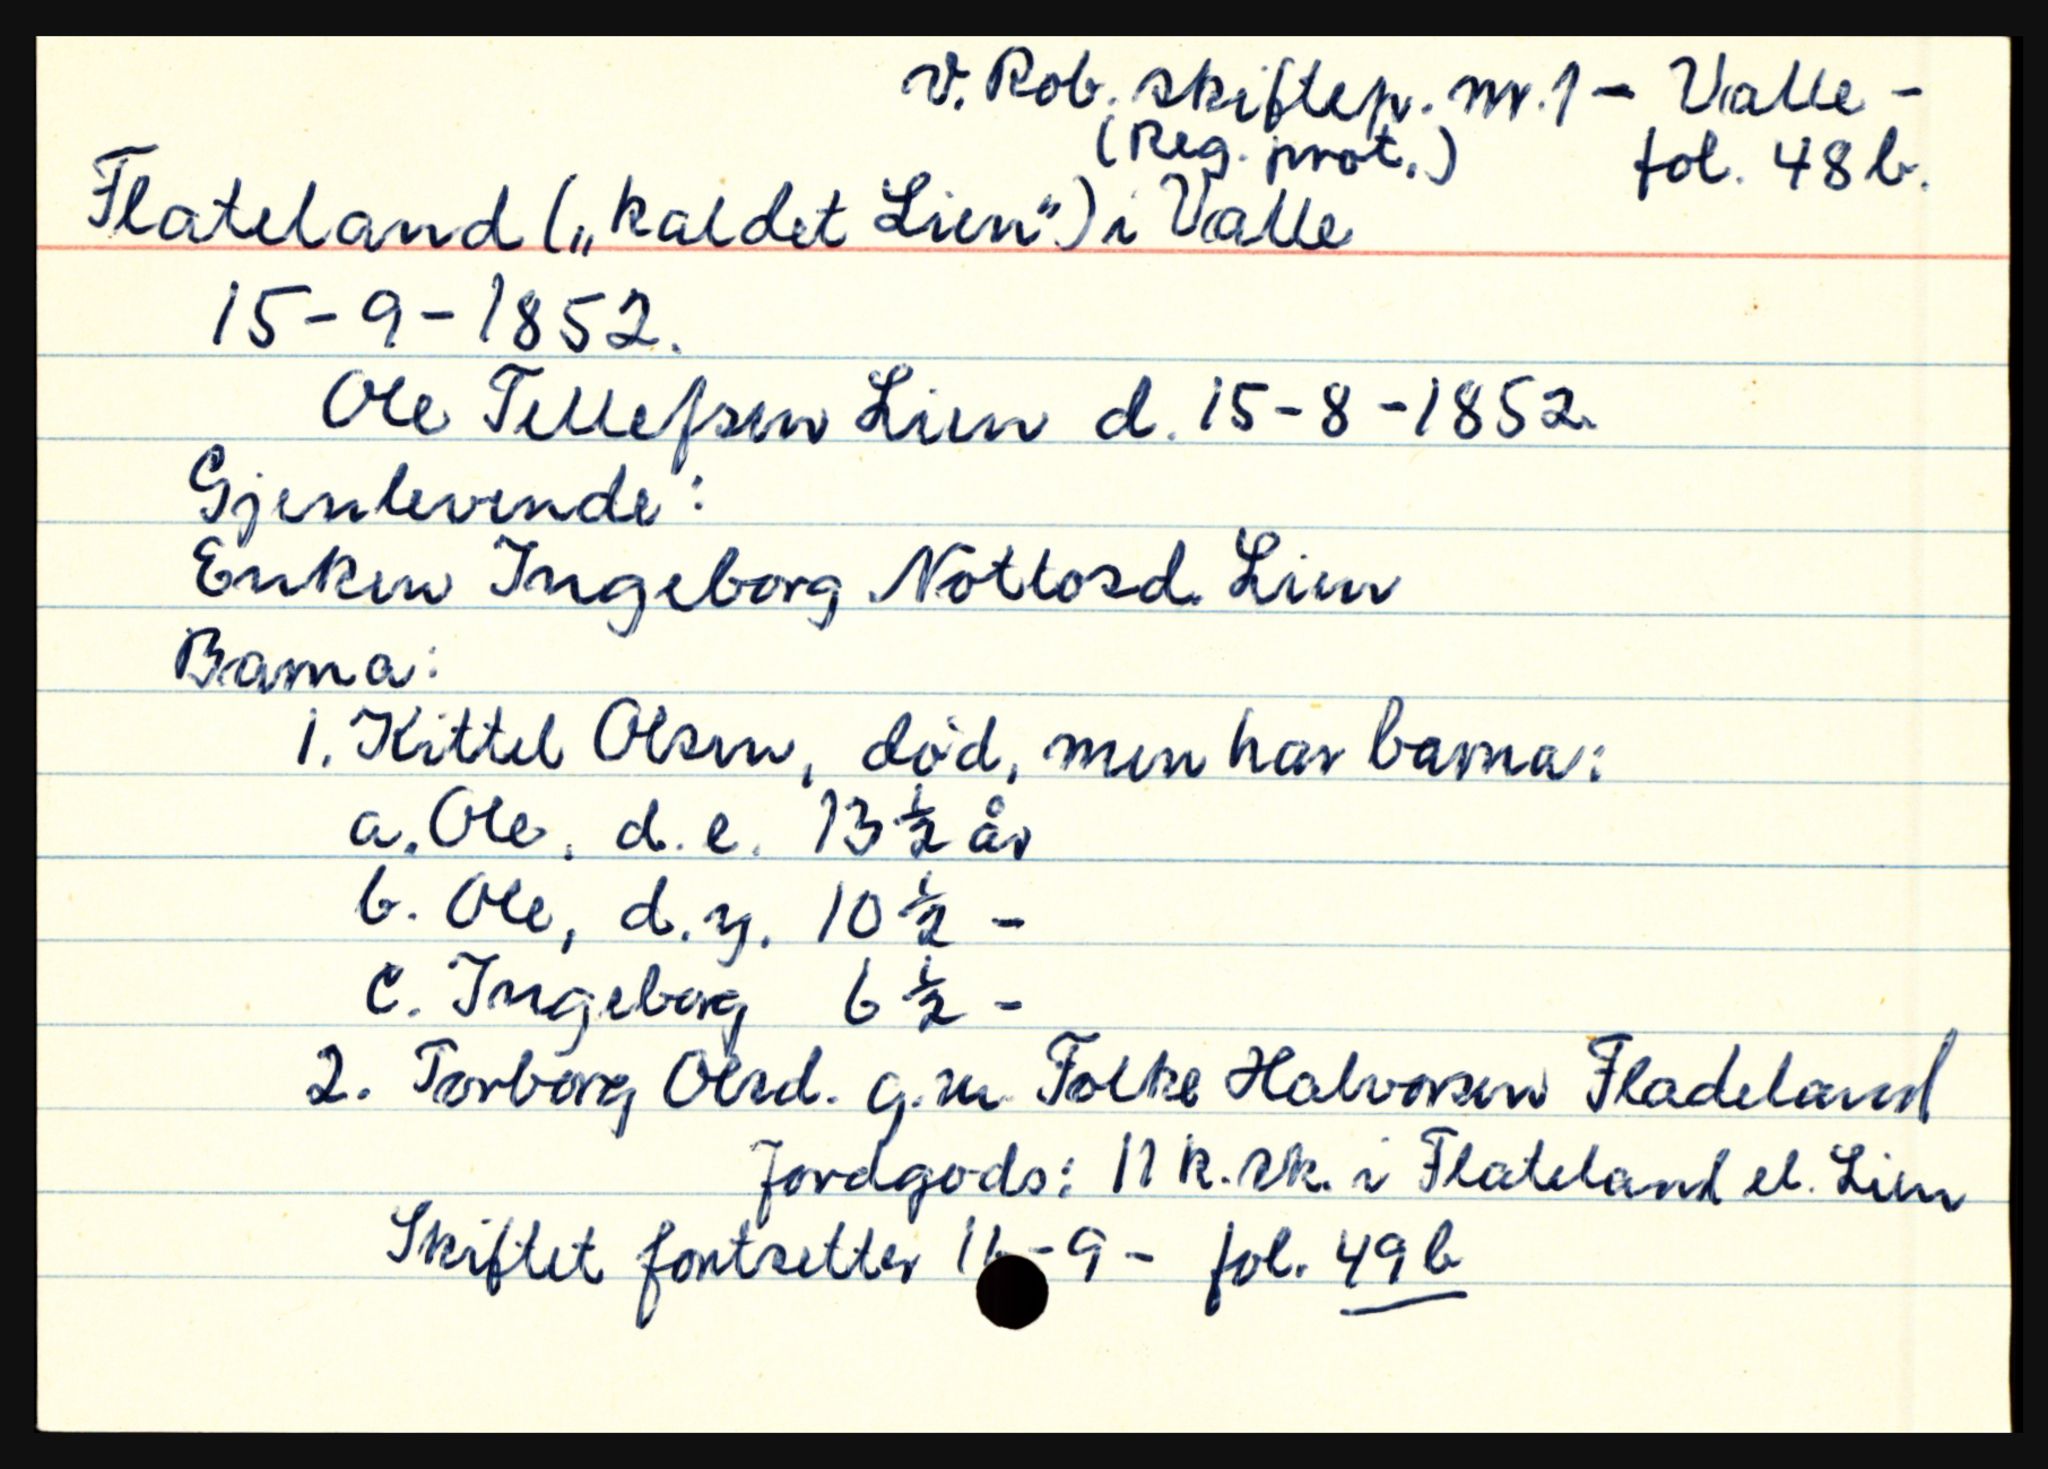 v. Rob. skiftep. nr. 1 - Valle -
(Reg. prot.) fol. 48b.
Flateland („kaldet Lien") i Valle
15-9-1852.
Ole Tellefsen Lien d. 15-8-1852.
Gjenlevende:
Enken Ingeborg Nottosd. Lien
Barna:
1. Kittel Olsen, død, men har barna:
a. Ole, d.e. 13 ½ år
b. Ole, d.y. 10 ½ -
c. Ingeborg 6 ½ -
2. Torborg Olsd. g.m. Folke Halvorsen Fladeland
Jordgods: 11 k.sk. i Flateland el. Lien
Skiftet fortsetter -9- fol. 49b